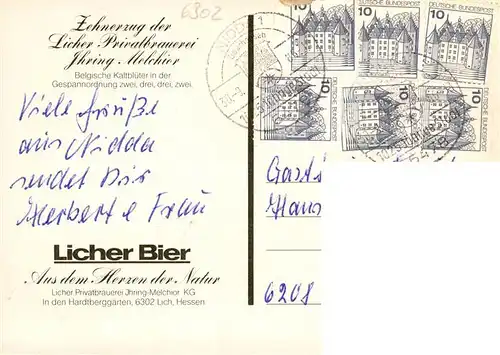 6302
Zehnerzug der
Licher Privatbrauerei
Jhring Melchior
Belgische Kaltblüter in der
Gespannordnung zwei, drei, drei, zwei.
Viele Grüße
aus Nidda
sendet Dir
Herbert e Frau
Licher Bier
Aus dem Herzen der Natur
Licher Privatbrauerei Jhring-Melchior KG
In den Hardtberggärten, 6302 Lich, Hessen
10 DEUTSCHE BUNDESPOST
10 DEUTSCHE BUNDESPOST
10 DEUTSCHE BUNDESPOST
10 DEUTSCHE BUNDESPOST
10
10 DEUTSCHE BUNDESPOST
Gast
Haus
6208